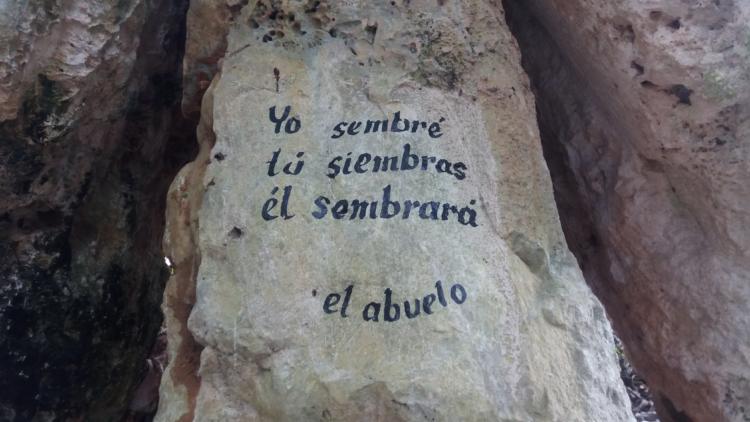 Yo sembré
tú siembras
él sembrará
el abuelo